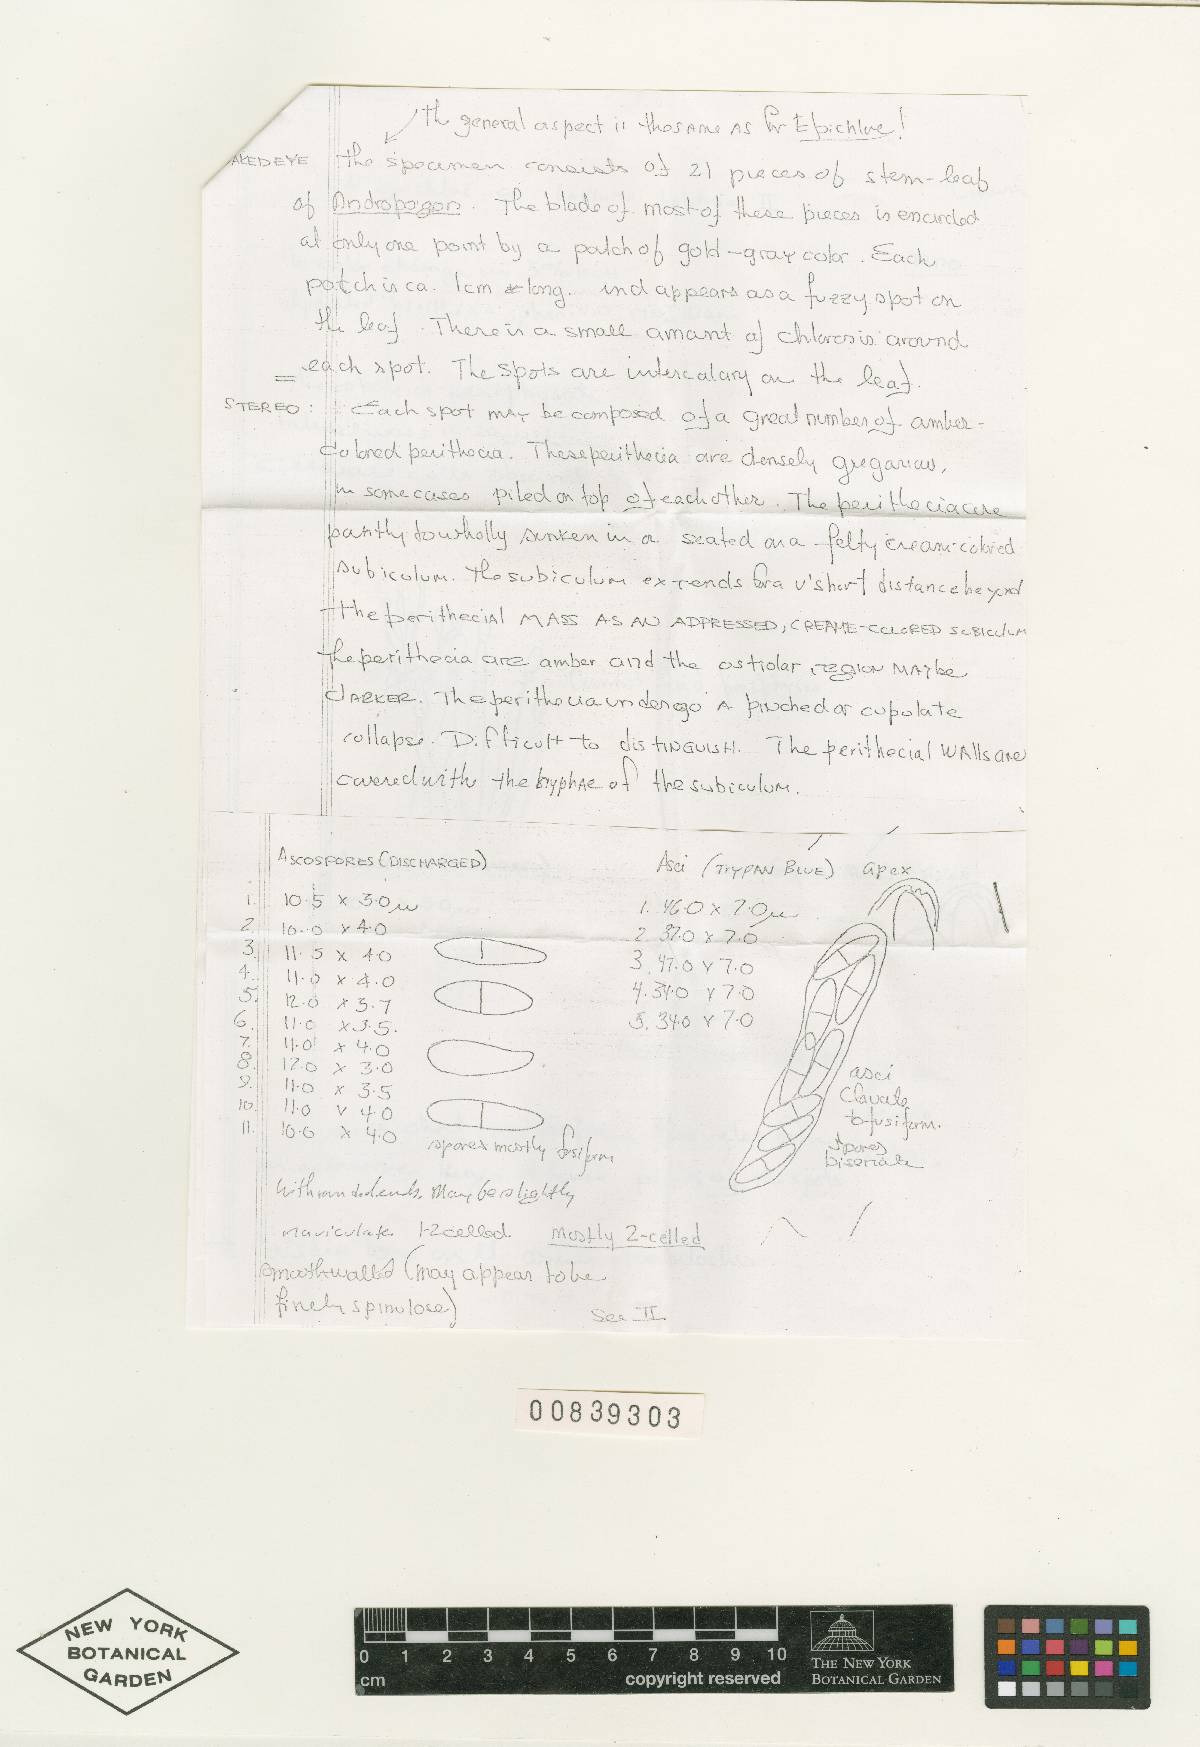 the general aspect is the same as for Epichloe!
AKED EYE the specimen consists of 21 pieces of stem-leaf
of Andropogon. The blade of most of these pieces is encircled
at only one point by a patch of gold-gray color. Each
patch is ca. 1cm long. and appears as a fuzzy spot on
the leaf. There is a small amant of chlorosis around
each spot. The spots are intercalary on the leaf.
STEREO: Each spot may be composed of a great number of amber-
colored perithecia. These perithecia are densely gregarious,
in some cases piled on top of each other. The perithecia are
partly to wholly sunken in a seated on a felty cream-colored
subiculum. The subiculum extends for a v. short distance beyond
the perithecial MASS AS AN APPRESSED, CREAME-COLORED SUBICULUM
the perithecia are amber and the ostiolar region may be
darker. The perithecia undergo a pinched or cupolate
collapse. Difficult to distinguish. The perithecial walls are
covered with the hyphae of the subiculum.
ASCOSPORES (DISCHARGED)
1. 10.5 x 3.0 µ
2. 10.0 x 4.0
3. 11.5 x 4.0
4. 11.0 x 4.0
5. 12.0 x 3.7
6. 11.0 x 3.5.
7. 11.0 x 4.0
8. 12.0 x 3.0
9. 11.0 x 3.5
10. 11.0 x 4.0
11. 10.0 x 4.0
spores mostly fusiform
with rounded ends. May be slightly
naviculate. 1-2 celled. mostly 2-celled
smooth-walled (may appear to be
finely spinulose)
See II
Asci (TRYPAN BLUE) apex
1. 46.0 x 7.0 µ
2. 37.0 x 7.0
3. 47.0 x 7.0
4. 34.0 x 7.0
5. 34.0 x 7.0
asci
Clavate
to fusiform.
spores
biseriate
00839303
NEW YORK
BOTANICAL
GARDEN
0 1 2 3 4 5 6 7 8 9 10
cm copyright reserved
THE NEW YORK
BOTANICAL GARDEN